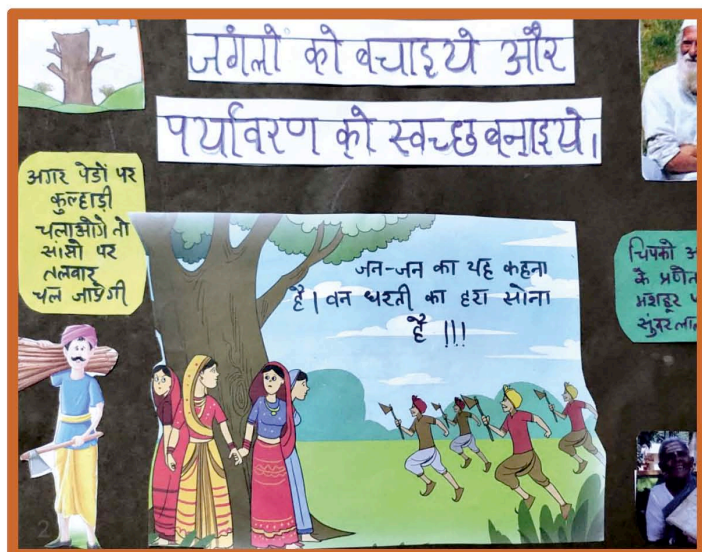 जगंलो को बचाइये और
पर्यावरण को स्वच्छ बनाइये।
अगर पेडों पर
कुल्हाड़ी
चलाओगे तो
सांसो पर
तलवार
चल जाऐगी
जन-जन का यह कहना
है। वन धरती का हरा सोना
है !!!
चिपको
के
मशहूर
सुंदर
2